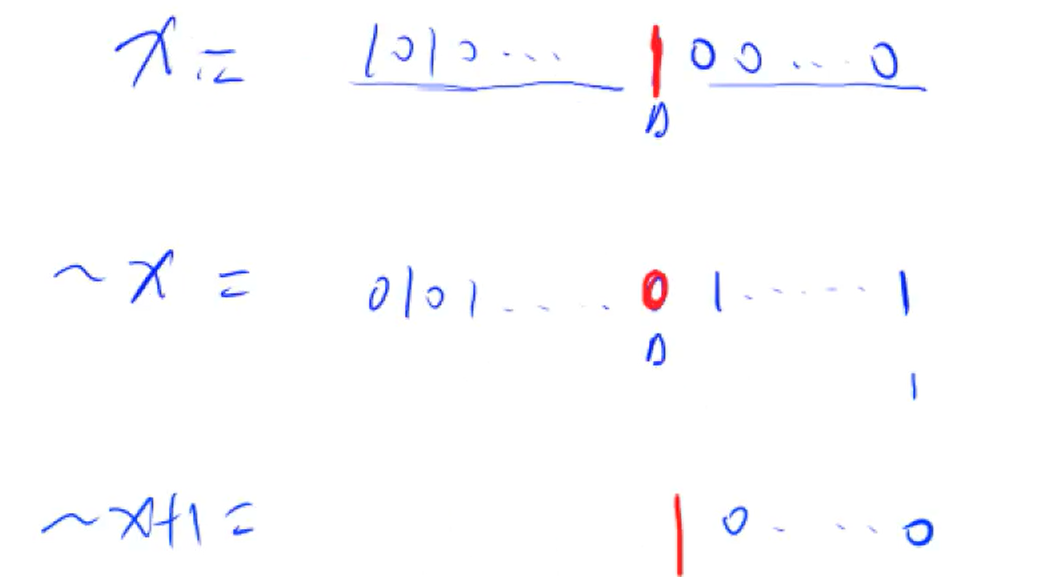 x = 1010... 1 00...0
~x = 0101.... 0 1......1
1
~x+1 = 1 0....0